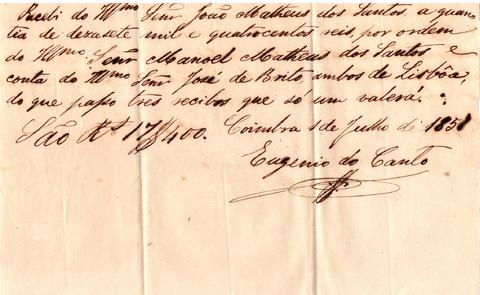 Recebi do Illmo Senr João Matheus dos Santos. a quan
tia de dezasete mil e quatrocentos reis, por ordem
do Illmo Senr Manoel Matheus dos Santos e
conta do Illmo Senr José de Brito, ambos de Lisbôa,
do que passo tres recibos que só um valerá.
São Rs 17$400. Coimbra 1 de Julho de 1851
Eugenio do Canto